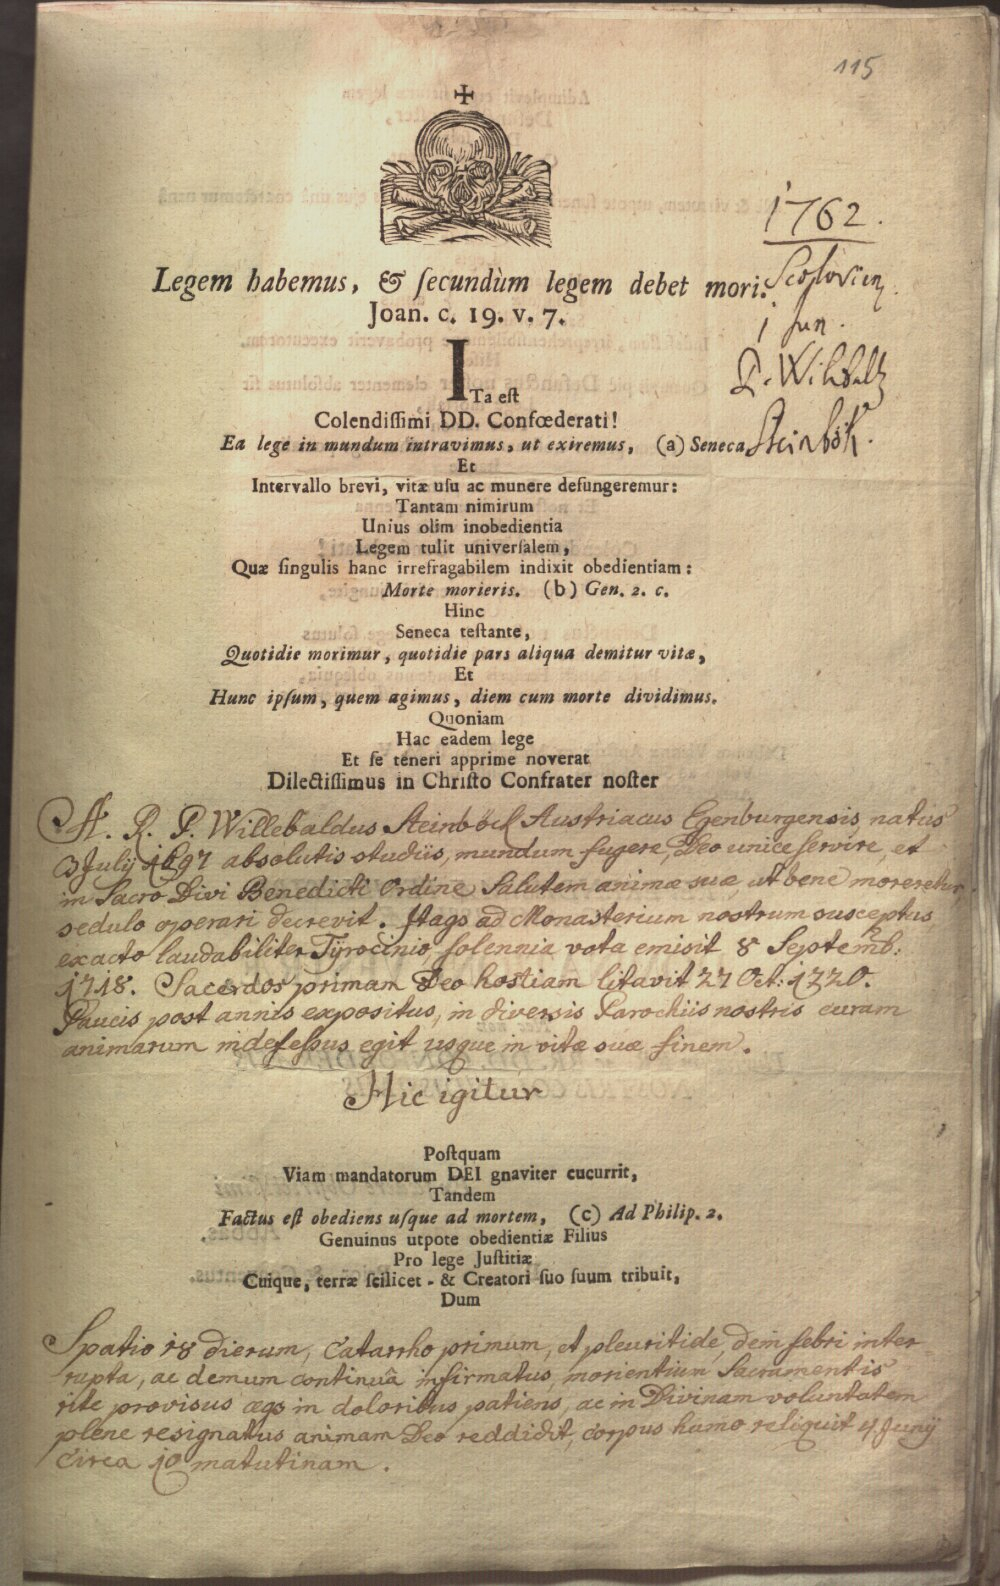 115
1762.
Legem habemus, & ſecundùm legem debet mori.
Joan. c. 19. v. 7.
1 Jun.
P. Wilibald
Steinböck.
ITa eſt
Colendiſſimi DD. Confœderati!
Ea lege in mundum intravimus, ut exiremus, (a) Seneca
Et
Intervallo brevi, vitæ uſu ac munere defungeremur:
Tantam nimirum
Unius olim inobedientia
Legem tulit univerſalem,
Quæ ſingulis hanc irrefragabilem indixit obedientiam:
Morte morieris. (b) Gen. 2. c.
Hinc
Seneca teſtante,
Quotidie morimur, quotidie pars aliqua demitur vitæ,
Et
Hunc ipſum, quem agimus, diem cum morte dividimus.
Quoniam
Hac eadem lege
Et ſe teneri apprime noverat
Dilectiſſimus in Chriſto Confrater noſter
A. R. P. Willebaldus Steinböck Austriacus Egenburgensis, natus
3 July 1697 absolutis studiis, mundum fugere, Deo unice servire, et
in Sacro Divi Benedicti Ordine Salutem animæ suæ, ut bene moreretur,
sedulo operari decrevit. Itaqs ad Monasterium nostrum susceptus
exacto laudabiliter Tyrocinio solennia vota emisit 8 Septemb:
1718. Sacerdos primam Deo hostiam litavit 27 Oct: 1720.
Paucis post annis expositus, in diversis Parochiis nostris curam
animarum indefessus egit usque in vitæ suæ finem.
Hic igitur
Poſtquam
Viam mandatorum DEI gnaviter cucurrit,
Tandem
Factus eſt obediens uſque ad mortem, (c) Ad Philip. 2.
Genuinus utpote obedientiæ Filius
Pro lege Juſtitiæ
Cuique, terræ ſcilicet - & Creatori ſuo ſuum tribuit,
Dum
Spatio 18 dierum, Catarrho primum, et pleuritide, dein febri inter-
rupta, ac demum continua infirmatus, morientium Sacramentis
rite provisus æqs in doloribus patiens, ac in Divinam voluntatem
plene resignatus animam Deo reddidit, corpus humo reliquit 1 Junij
Circa 10 matutinam.